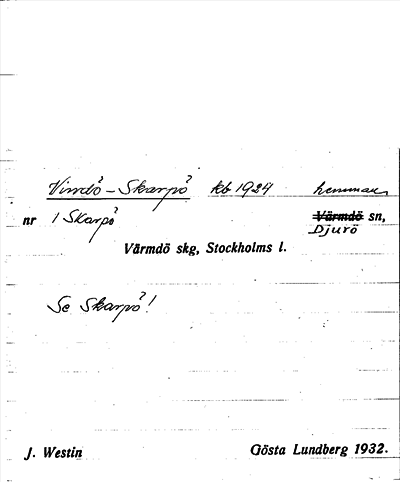 Vindö-Skarpö kb 1924 hemman
nr 1 Skarpö Värmdö sn,
Djurö
Värmdö skg, Stockholms l.
Se Skarpö!
J. Westin Gösta Lundberg 1932.